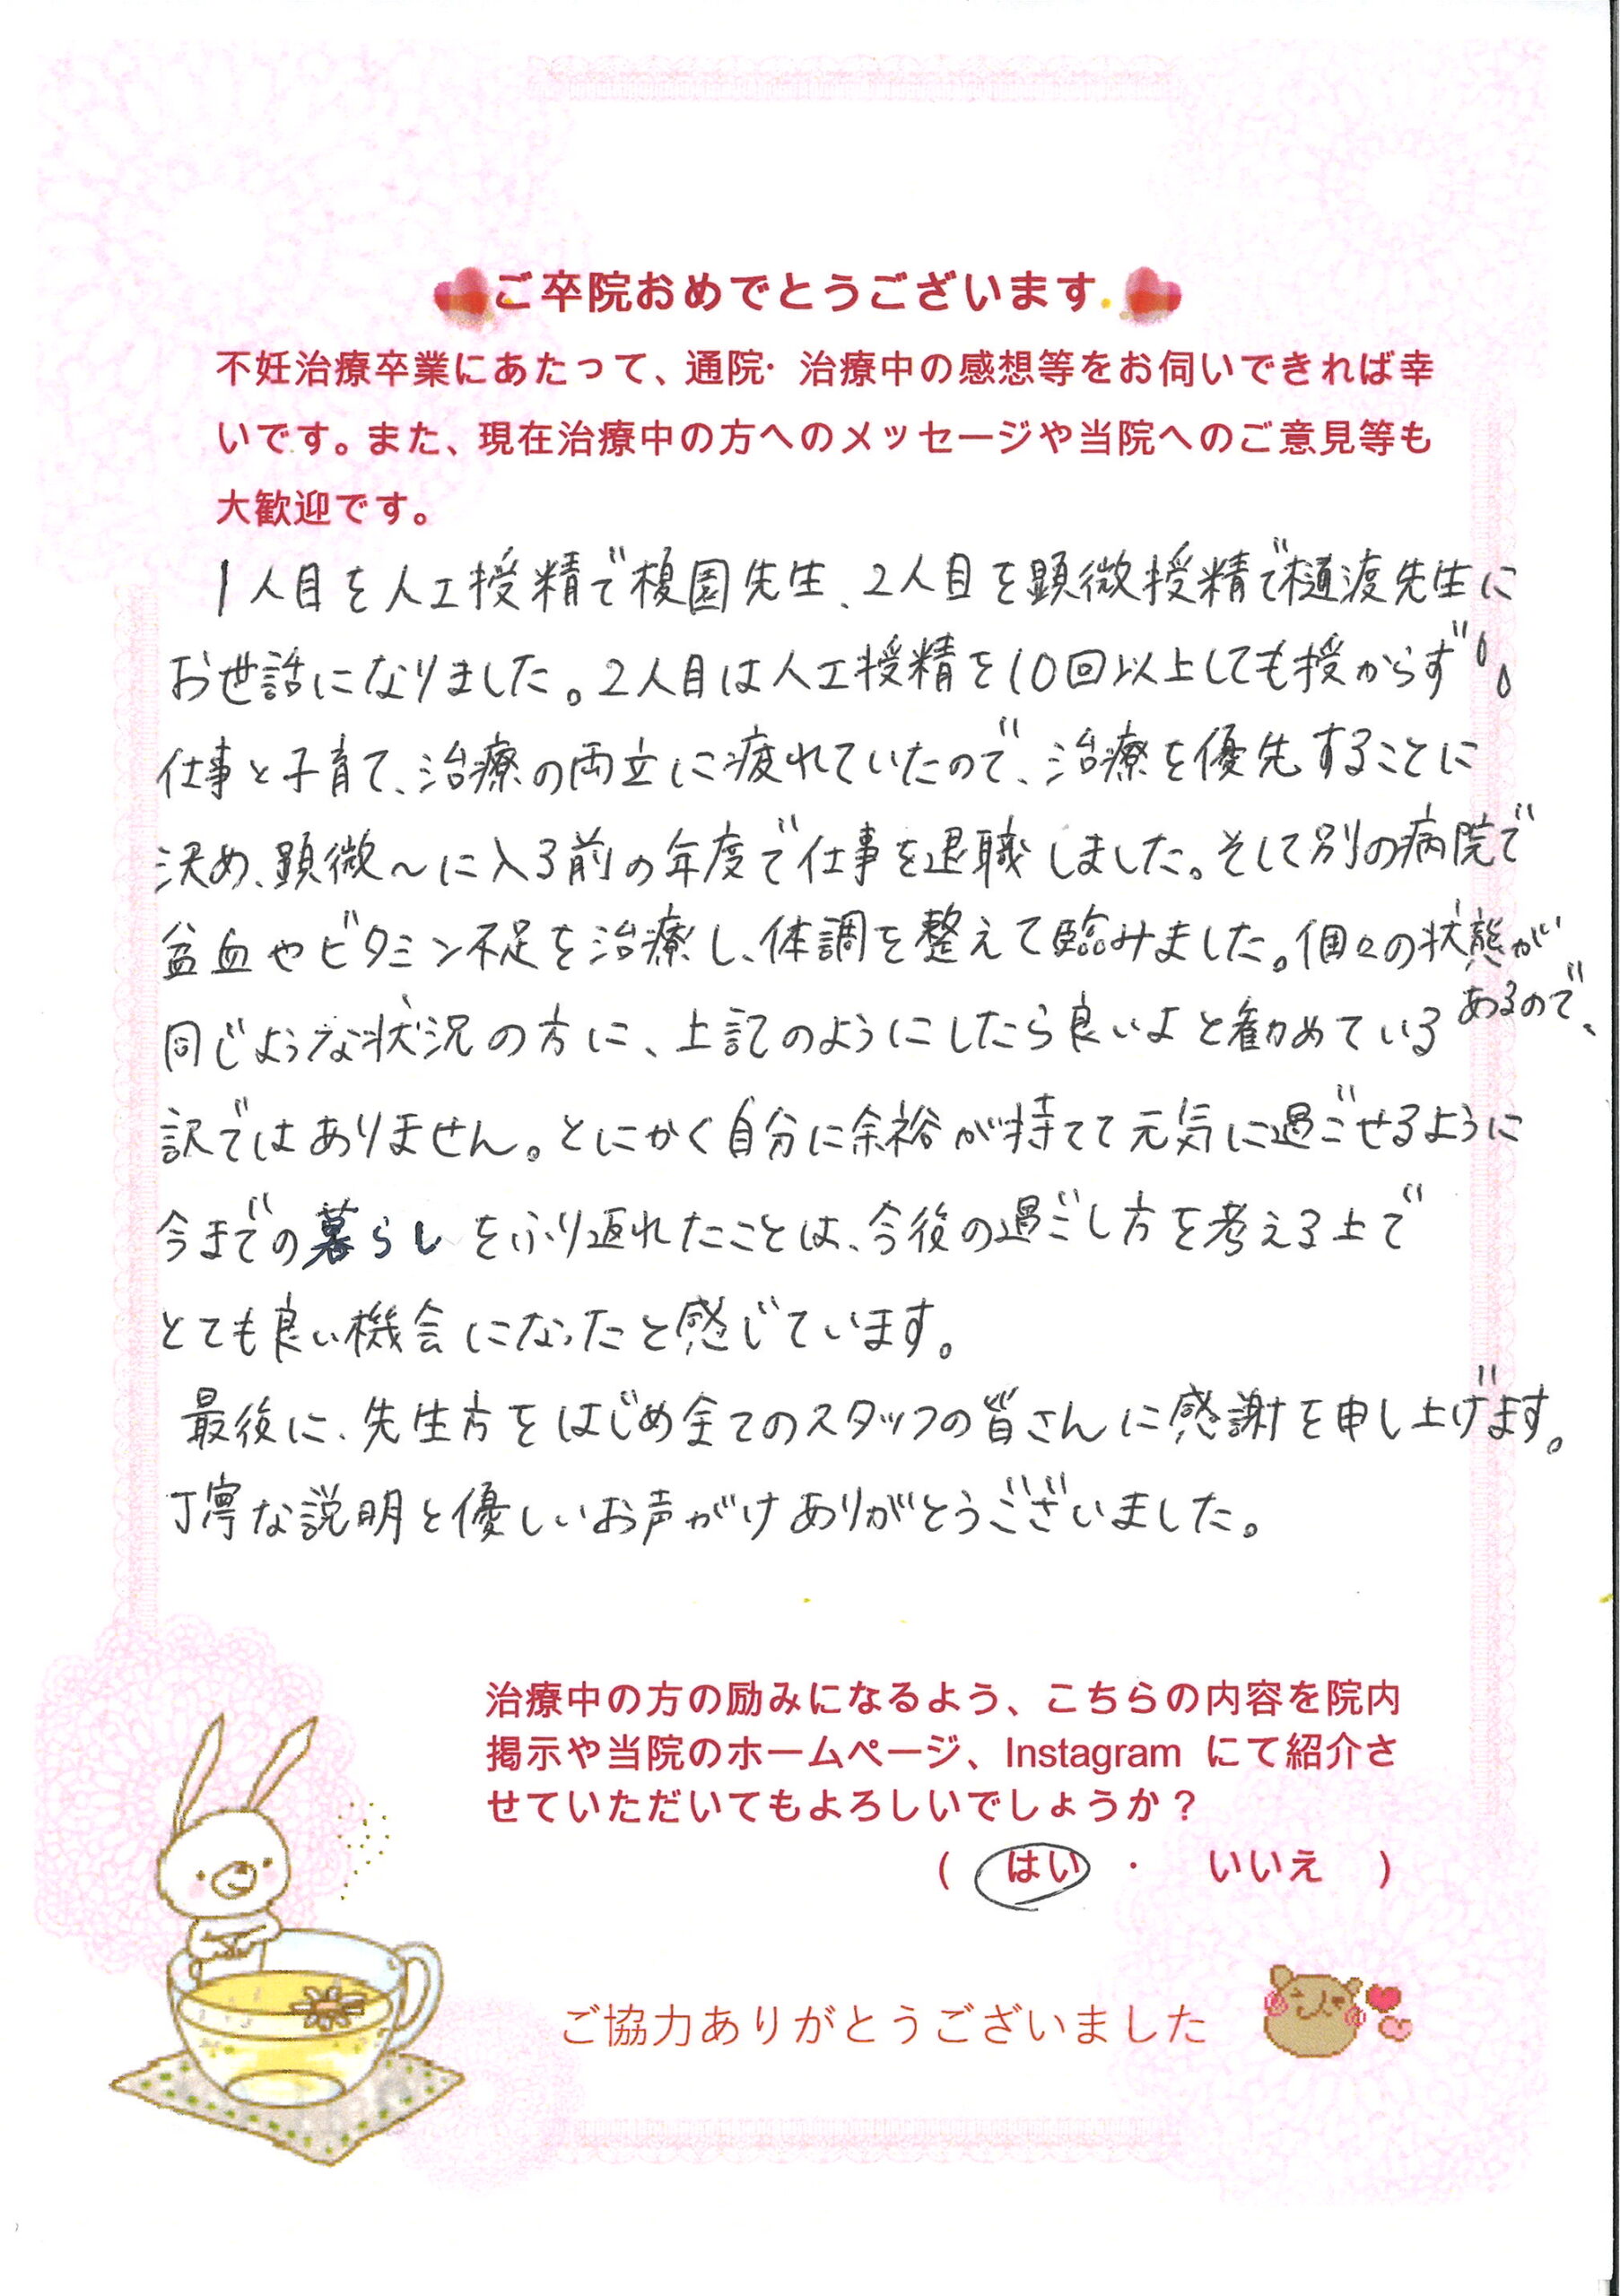 ご卒院おめでとうございます
不妊治療卒業にあたって、通院・治療中の感想等をお伺いできれば幸
いです。また、現在治療中の方へのメッセージや当院へのご意見等も
大歓迎です。
1人目を人工授精で榎園先生、2人目を顕微授精で樋渡先生に
お世話になりました。2人目は人工授精を10回以上しても授からず
仕事と子育て、治療の両立に疲れていたので、治療を優先することに
決め、顕微〜に入る前の年度で仕事を退職しました。そして別の病院で
貧血やビタミン不足を治療し、体調を整えて臨みました。個々の状態が
あるので、
同じような状況の方に、上記のようにしたら良いよと勧めている
訳ではありません。とにかく自分に余裕が持てて元気に過ごせるように
今までの暮らしをふり返れたことは、今後の過ごし方を考える上で
とても良い機会になったと感じています。
最後に、先生方をはじめ全てのスタッフの皆さんに感謝を申し上げます。
丁寧な説明と優しいお声がけありがとうございました。
治療中の方の励みになるよう、こちらの内容を院内
掲示や当院のホームページ、Instagram にて紹介さ
せていただいてもよろしいでしょうか？
( はい ・ いいえ )
ご協力ありがとうございました